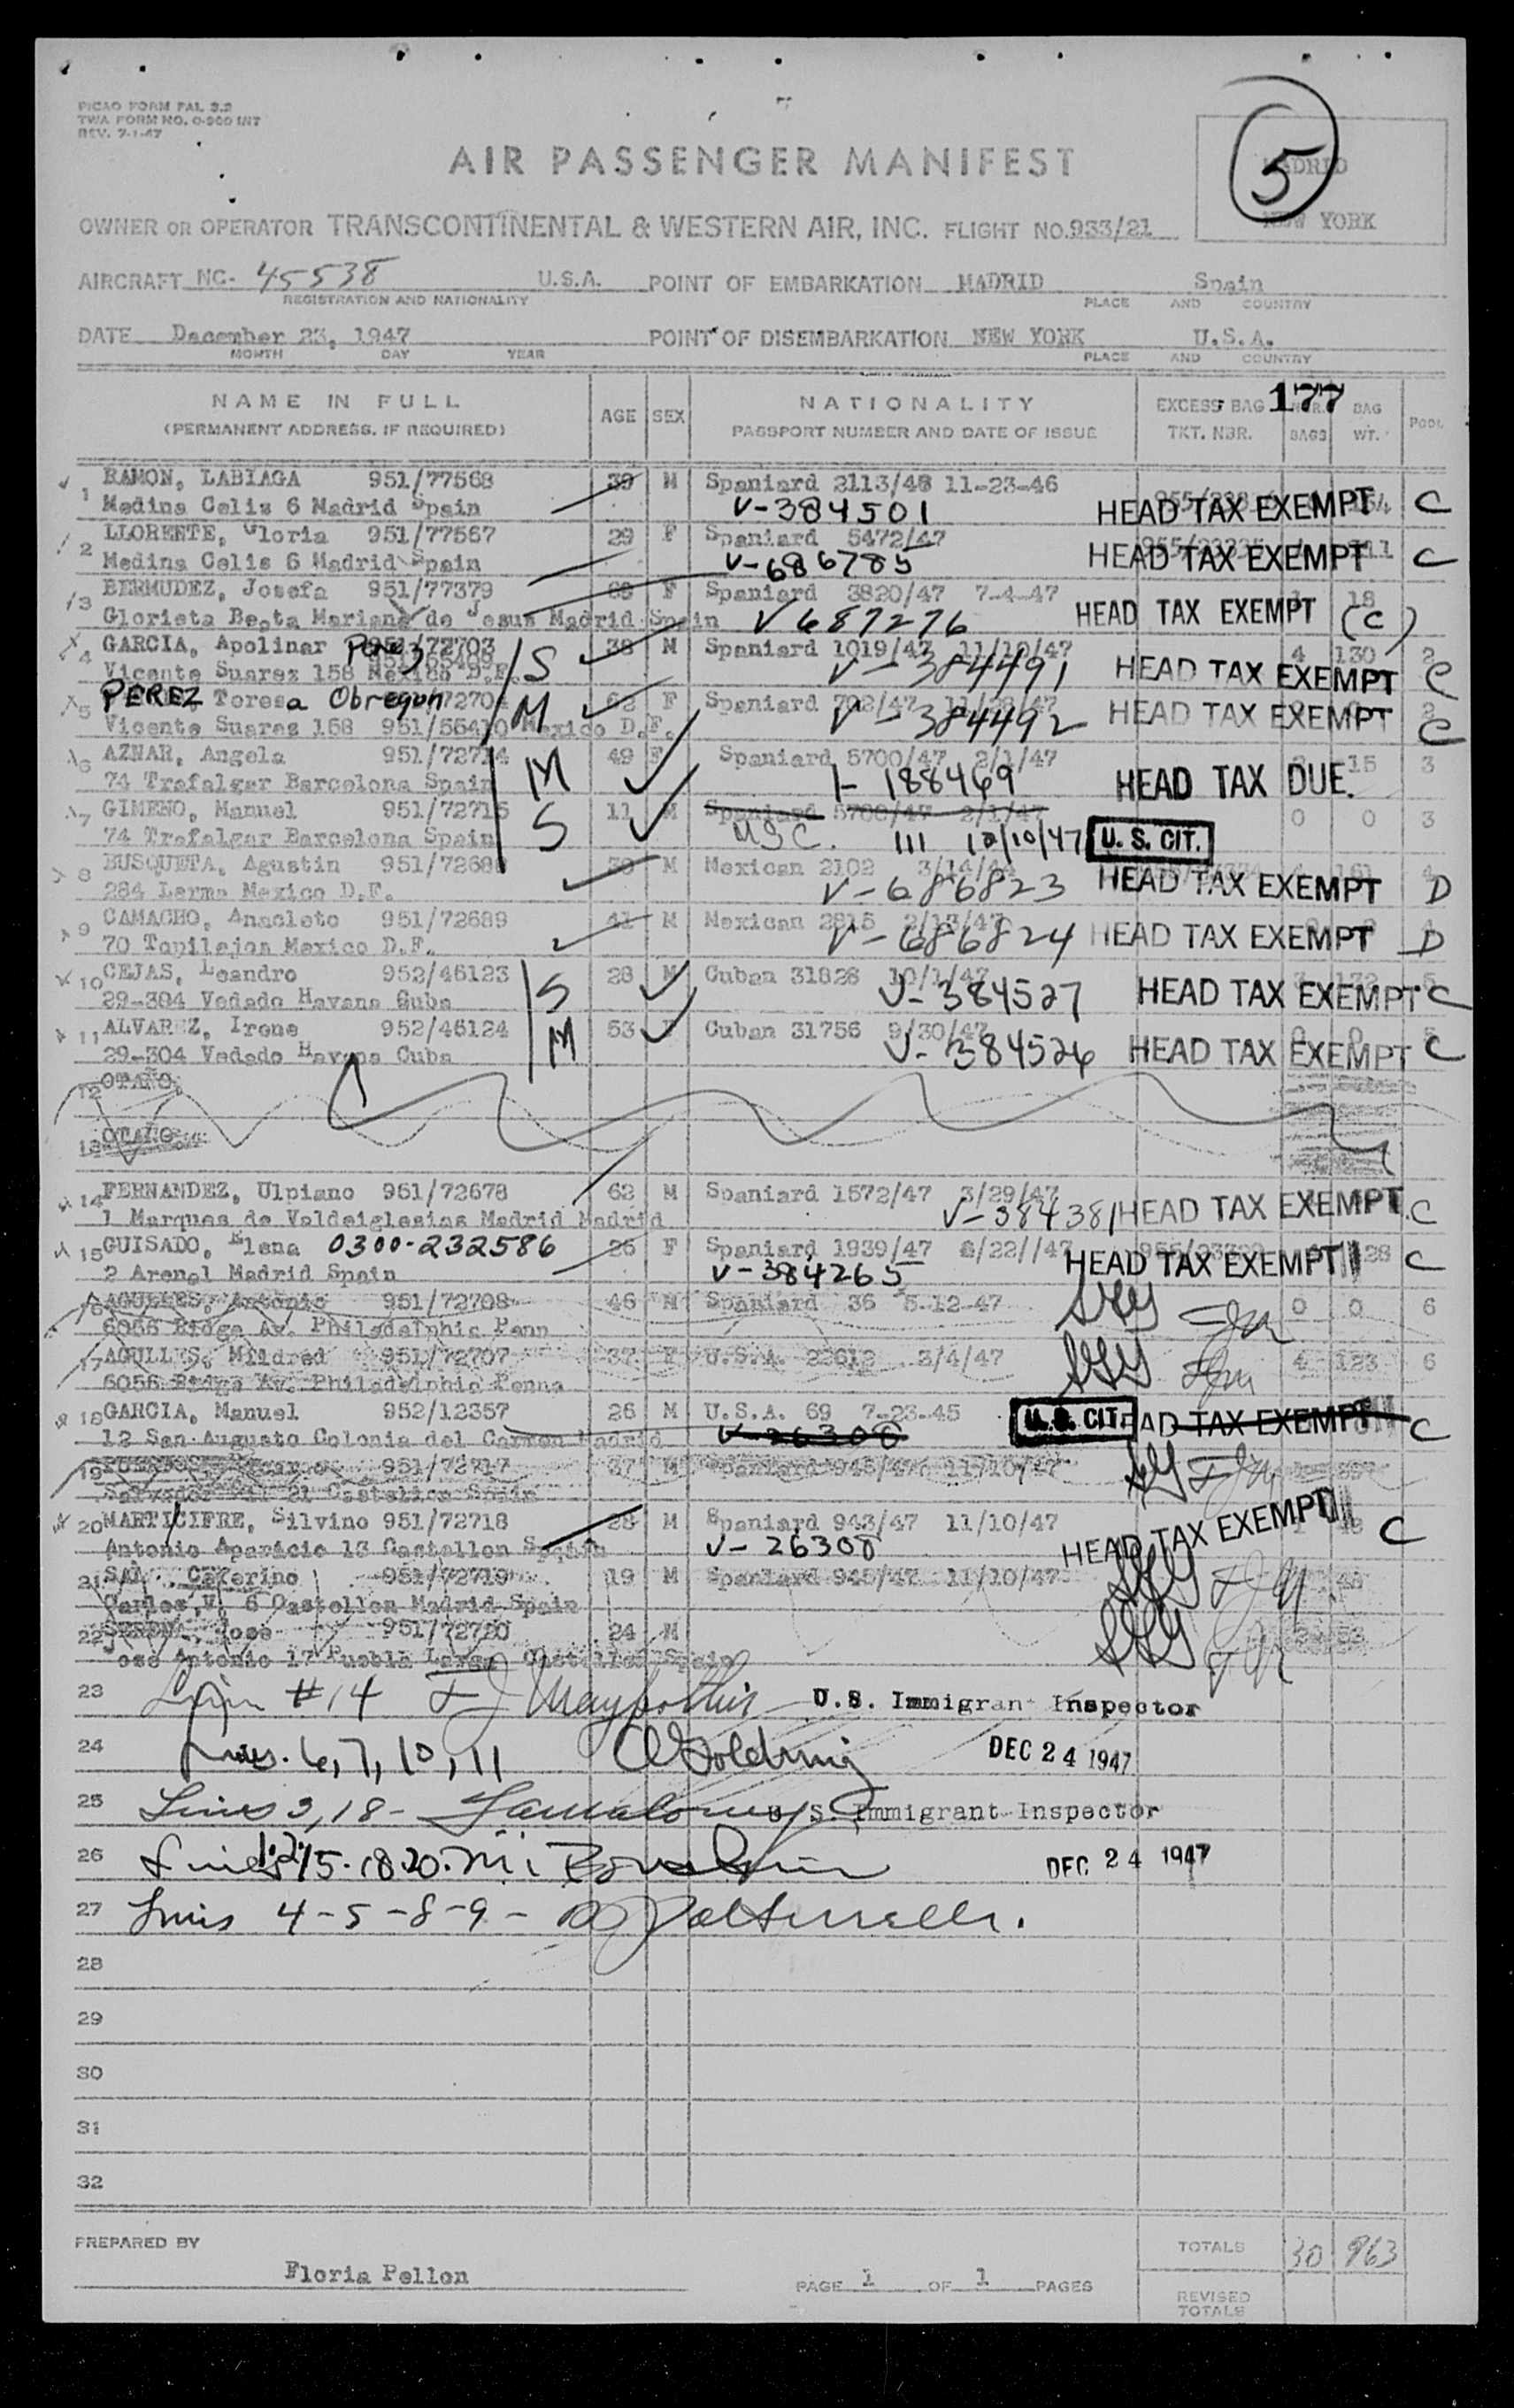 PICAO FORM PAL 3.2
TWA FORM NO. O-900 INT
REV. 7-1-47
5
MADRID
NEW YORK
AIR PASSENGER MANIFEST
OWNER OR OPERATOR TRANSCONTINENTAL & WESTERN AIR, INC. FLIGHT NO. 933/21
AIRCRAFT NC- 45538 U.S.A. POINT OF EMBARKATION MADRID Spain
REGISTRATION AND NATIONALITY PLACE AND COUNTRY
DATE December 23, 1947 POINT OF DISEMBARKATION NEW YORK U.S.A.
MONTH DAY YEAR PLACE AND COUNTRY
177
NAME IN FULL AGE SEX NATIONALITY EXCESS BAG BAG POOL
(PERMANENT ADDRESS, IF REQUIRED) PASSPORT NUMBER AND DATE OF ISSUE TKT. NBR. BAGS WT.
1 RAMON, LABIAGA 951/77568 39 M Spaniard 2113/46 11-23-46
Medina Celis 6 Madrid Spain V-384501 HEAD TAX EXEMPT C
2 LLORENTE, Gloria 951/77567 29 F Spaniard 5472/47
Medina Celis 6 Madrid Spain V-686785 HEAD TAX EXEMPT C
3 BERMUDEZ, Josefa 951/77379 F Spaniard 3820/47 7-4-47 18
Glorieta Beata Mariana de Jesus Madrid Spain V 687276 HEAD TAX EXEMPT (C)
4 GARCIA, Apolinar Perez 951/72703 38 M Spaniard 1019/47 11/10/47 4 130 2
Vicente Suarez 158 Mexico D.F. S V-384491 HEAD TAX EXEMPT C
5 PEREZ Teresa Obregon 62 F Spaniard 702/47 2
Vicente Suarez 158 951/55410 Mexico D.F. M V-384492 HEAD TAX EXEMPT C
6 AZNAR, Angela 951/72714 49 F Spaniard 5700/47 2/1/47 15 3
74 Trafalgar Barcelona Spain M I-188469 HEAD TAX DUE.
7 GIMENO, Manuel 951/72715 11 M Spaniard 5700/47 2/1/47 0 0 3
74 Trafalgar Barcelona Spain S 111 12/10/47 U. S. CIT.
8 BUSQUETA, Agustin 951/72688 39 M Mexican 2102 161 4
284 Lerma Mexico D.F. V-686823 HEAD TAX EXEMPT D
9 CAMACHO, Anacleto 951/72689 41 M Mexican 2815 2/13/47
70 Topilejon Mexico D.F. V-686824 HEAD TAX EXEMPT D
10 CEJAS, Leandro 952/46123 28 M Cuban 31828 10/1/47 3 172 5
29-304 Vedado Havana Cuba S V-384527 HEAD TAX EXEMPT C
11 ALVAREZ, Irene 952/46124 53 Cuban 31756 9/30/47 0 0 5
29-304 Vedado Havana Cuba M V-384526 HEAD TAX EXEMPT C
12 OTAÑO,
13 OTAÑO
14 FERNANDEZ, Ulpiano 951/72678 62 M Spaniard 1572/47 3/29/47
1 Marques de Valdeiglesias Madrid Madrid V-384381 HEAD TAX EXEMPT. C
15 GUISADO, Elena 0300-232586 26 F Spaniard 1939/47 8/22//47 28
2 Arenal Madrid Spain V-384265 HEAD TAX EXEMPT C
16 AGULLES, Antonio 951/72708 46 M Spaniard 36 5-12-47 0 0 6
6056 Ridge Av. Philadelphia Penn
17 AGULLES, Mildred 951/72707 37 F U.S.A. 22612 3/4/47 4 123 6
6056 Ridge Av. Philadelphia Penna
18 GARCIA, Manuel 952/12357 26 M U.S.A. 69 7-23-45 U.S. CIT. HEAD TAX EXEMPT C
12 San Augusto Colonia del Carmen Madrid V-26308
19 951/72717 37 M Spaniard 945/47 11/10/47
21 Castellon Spain
20 MARTICIFRE, Silvino 951/72718 28 M Spaniard 943/47 11/10/47
Antonio Aparicio 13 Castellon Spain V-26308 HEAD TAX EXEMPT C
21 Ceferino 951/72719 19 M Spaniard 945/47 11/10/47
Carlos V. 6 Castellon Madrid Spain
22 Jose 951/72720 24 M
Jose Antonio 17 Puebla Larga Castellon Spain
23 #14 U.S. Immigrant Inspector
24 Lines. 6, 7, 10, 11 DEC 24 1947
25 Lines 3, 18- U.S. Immigrant Inspector
26 Lines 1.2.15.18.20. DEC 24 1947
27 Lines 4-5-8-9-
28
29
30
31
32
PREPARED BY TOTALS 30 963
Floria Pellon PAGE 1 OF 1 PAGES
REVISED
TOTALS